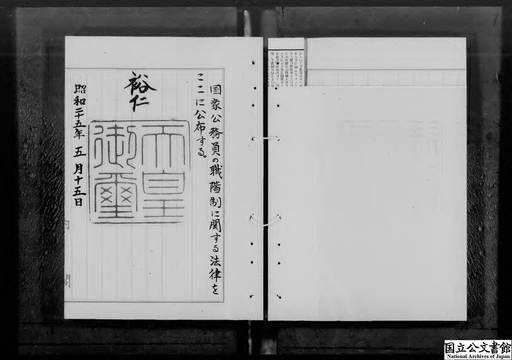 国家公務員の職階制に関する法律を
ここに公布する。
裕仁
天皇
御璽
昭和二十五年五月十五日
国立公文書館
National Archives of Japan